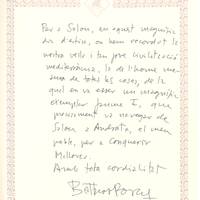 Per a Solou, en aquest magnífic
dia d'estiu, on hem recordat la
nostra vella i tan jove civilització
mediterrània, la de l'home me-
sura de totes les coses, de la
qual en va esser un magnífic
exemplar Jaume I, que
precisament va navegar de
Salou a Andratx, el meu
poble, per a Conquerir
Mallorca.
Amb tota cordialitat
Baltasar Porcel